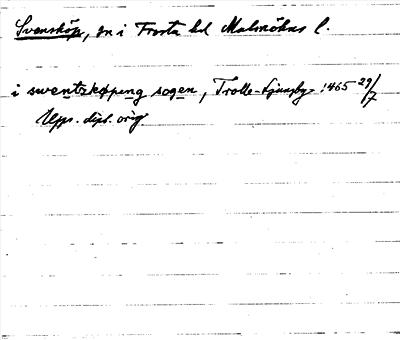 Svensköp, sn i Frosta hd Malmöhus l.
i swentzkøping sogen, Trolle-Ljungby 1465 29/7
Upps. dipl. orig.